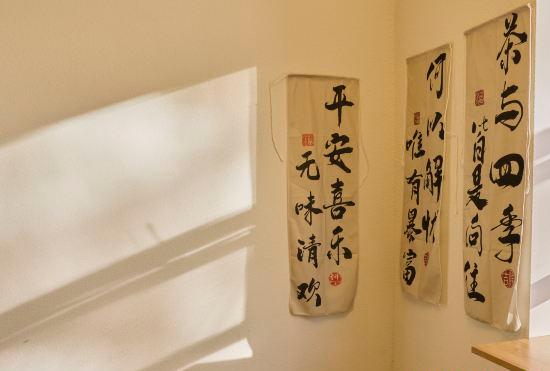 茶与四季
皆是向往
何以解忧
唯有暴富
平安喜乐
无味清欢